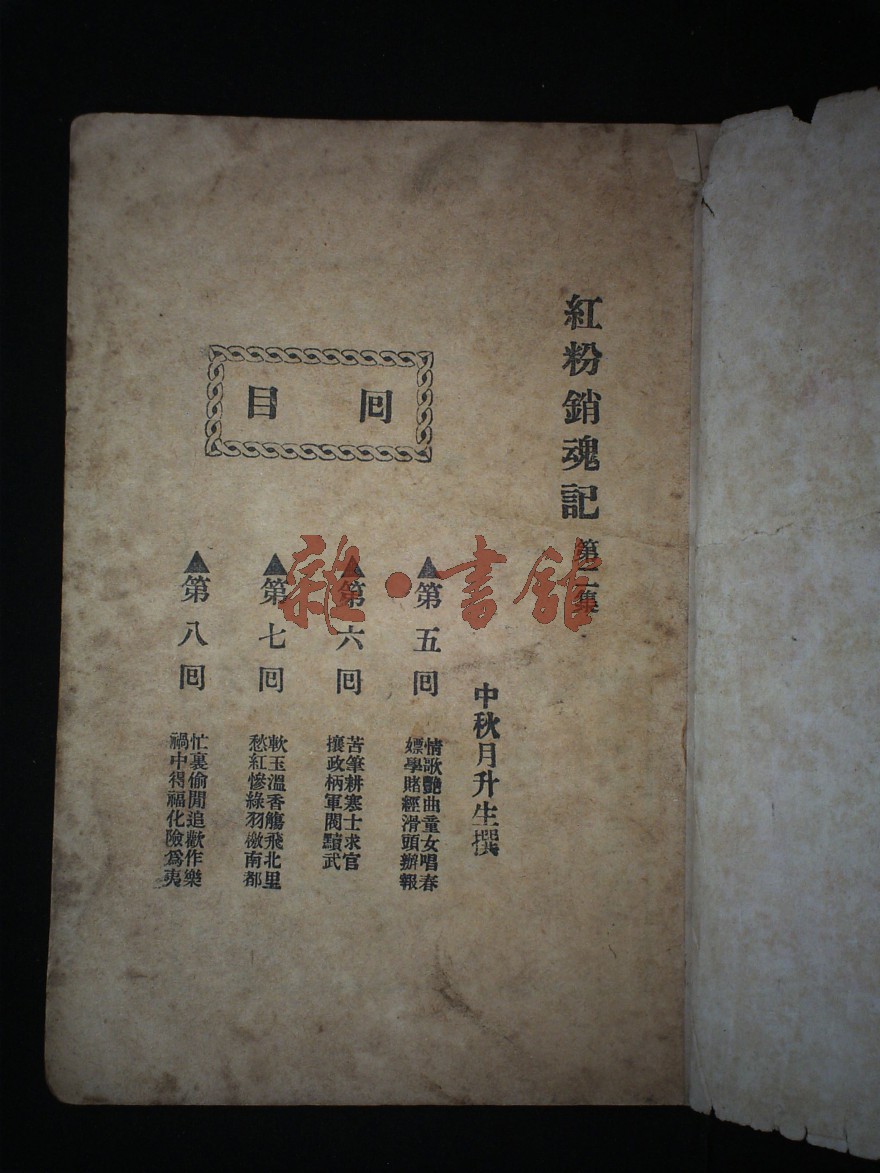 紅粉銷魂記 第二集
中秋月升生撰
回目
▲第五回
情歌艷曲童女唱春
嫖學賭經滑頭辦報
▲第六回
苦筆耕寒士求官
攘政柄軍閥黷武
▲第七回
軟玉溫香觴飛北里
愁紅慘綠羽檄南都
▲第八回
忙裏偷閒追歡作樂
禍中得福化險爲夷
雜·書館